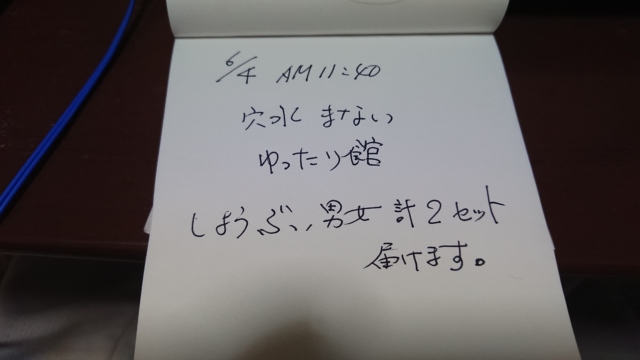 6/4 AM 11:40
穴水 まない
ゆったり館
しょうぶ、男女 計2セット
届けます。